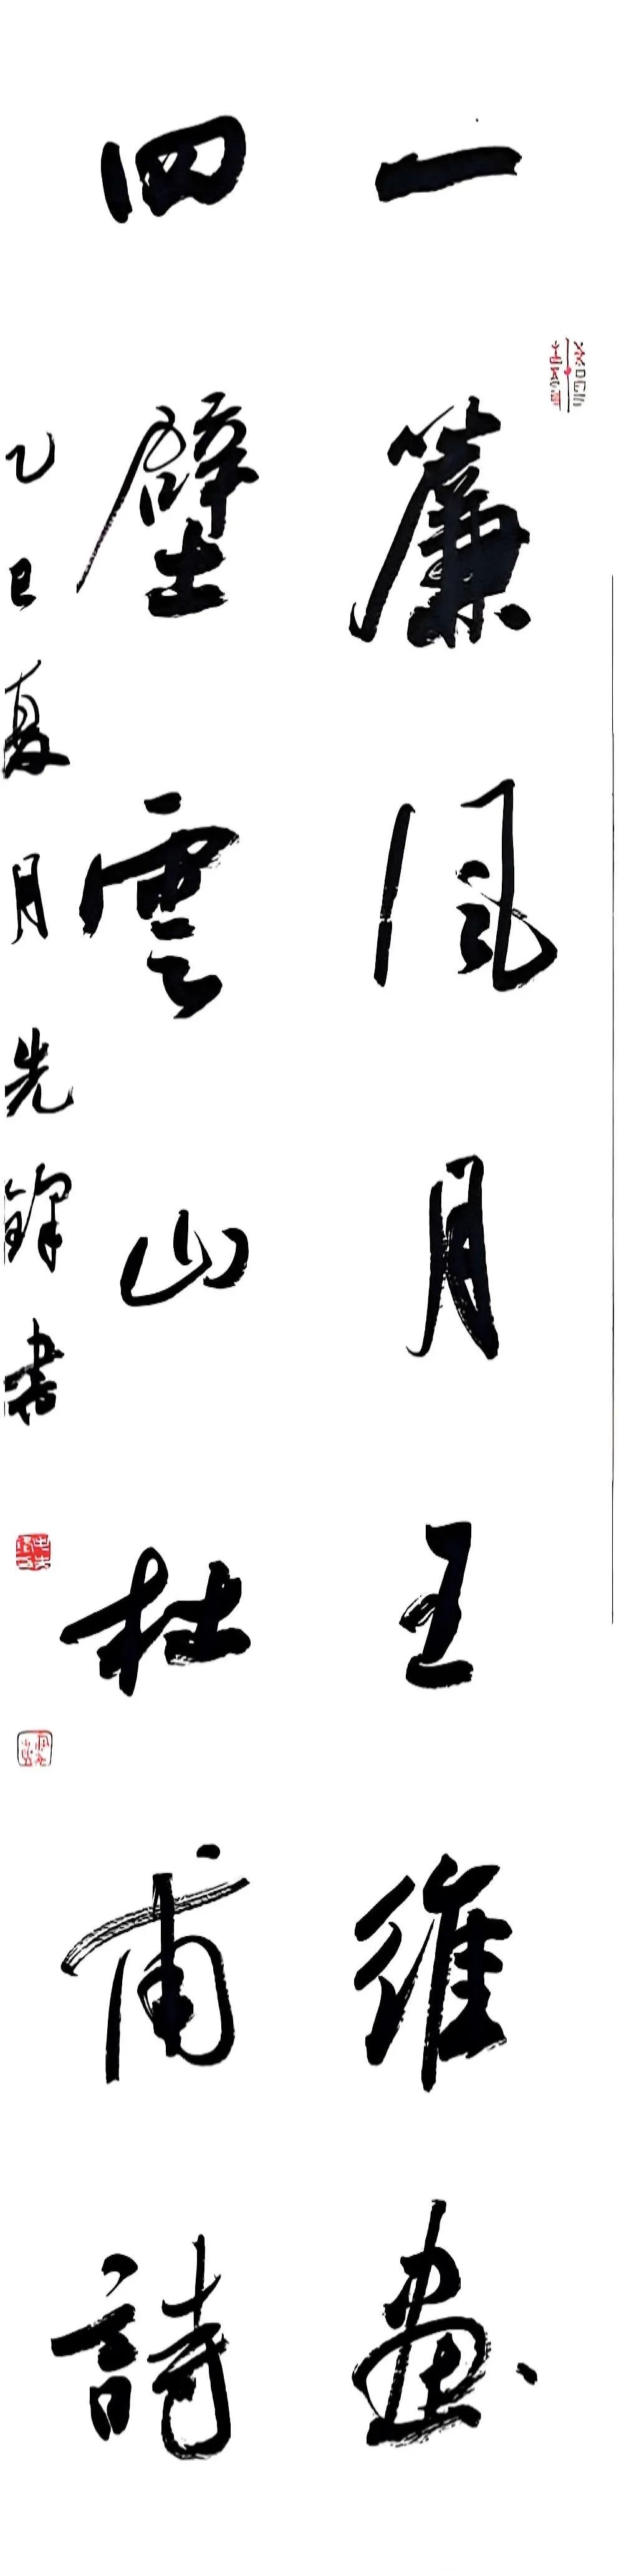 一簾風月王維畫
四壁雲山杜甫詩
乙巳夏月先鋒書